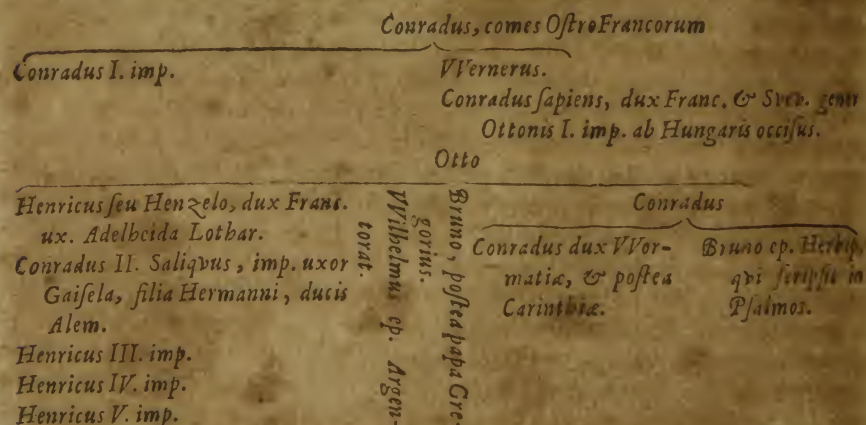 Conradus, comes OſtroFrancorum
Conradus I. imp.
VVernerus.
Conradus ſapiens, dux Franc. & Svev. gener
Ottonis I. imp. ab Hungaris occiſus.
Otto
Henricus ſeu Henzelo, dux Franc.
ux. Adelheida Lothar.
Conradus II. Saliqvus, imp. uxor
Gaiſela, filia Hermanni, ducis
Alem.
Henricus III. imp.
Henricus IV. imp.
Henricus V. imp.
VVilhelmus ep. Argen-
torat.
Bruno, poſtea papa Gre-
gorius.
Conradus
Conradus dux VVor-
matiæ, & poſtea
Carinthiæ.
Bruno ep. Herbip.
qvi ſcripſit in
Pſalmos.